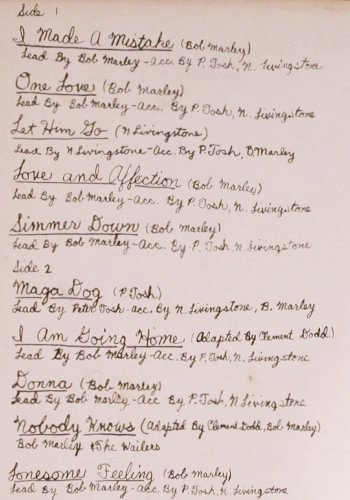 Side 1
I Made A Mistake (Bob Marley)
Lead By Bob Marley-Acc. By P. Tosh, N. Livingstone
One Love (Bob Marley)
Lead By Bob Marley-Acc. By P. Tosh, N. Livingstone
Let Him Go (N Livingstone)
Lead By N. Livingstone-Acc. By P. Tosh, B Marley
Love and Affection (Bob Marley)
Lead By Bob Marley-Acc. By P. Tosh, N. Livingstone
Simmer Down (Bob Marley)
Lead By Bob Marley-Acc. By P. Tosh, N. Livingstone
Side 2
Maga Dog (P. Tosh)
Lead By Peter Tosh-acc. By N. Livingstone, B. Marley
I Am Going Home (Adapted By Clement Dodd)
Lead By Bob Marley-Acc. By P. Tosh, N. Livingstone
Donna (Bob Marley)
Lead By Bob Marley-Acc By P. Tosh, N Livingstone
Nobody Knows (Adapted By Clement Dodd, Bob Marley)
Bob Marley & The Wailers
Lonesome Feeling (Bob Marley)
Lead By Bob Marley-Acc. By P. Tosh, N. Livingstone